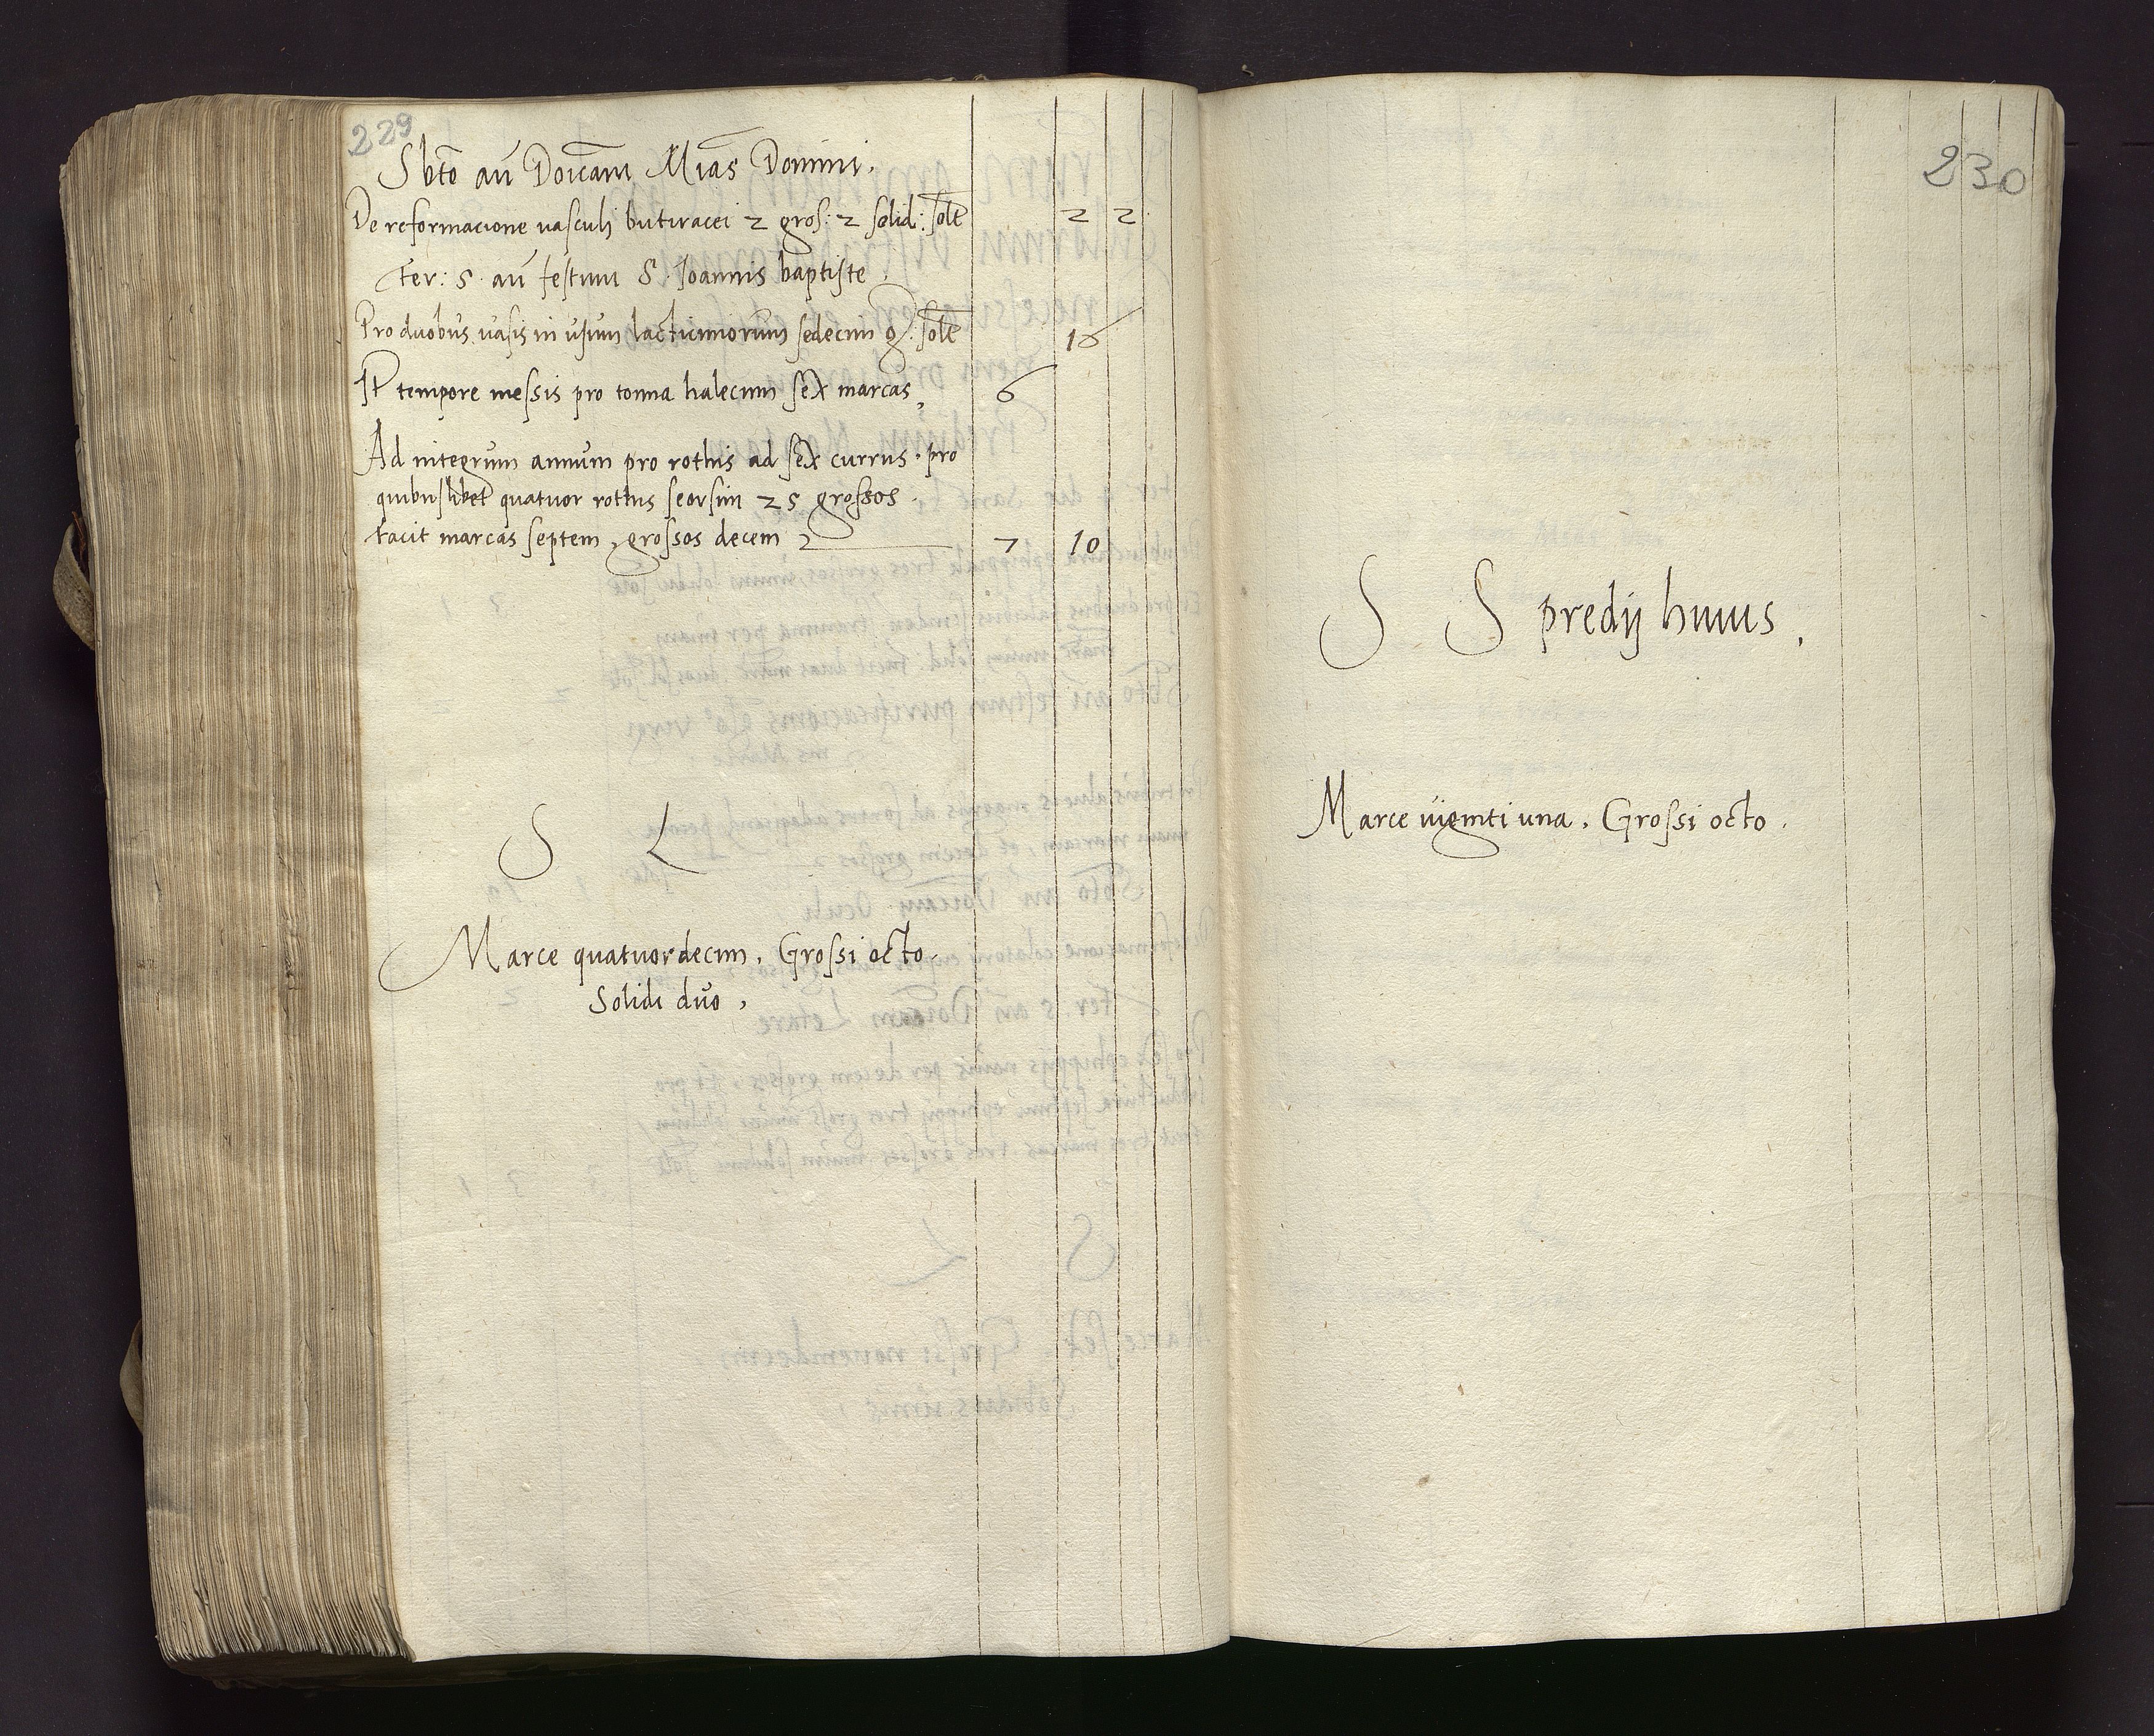 229
Sbto añ Doicam Mias Domini.
De reformacione vasculi butiracei 2 gros: 2 solid: solt 2 2
fer: 5 añ festum S. Ioannis baptiste
Pro duobus vasis in usum lacticiniorum sedecim g: solt 16
It tempore messis pro tonna halecum sex marcas, 6
Ad integrum annum pro rothis ad sex currus. pro
quibuslibet quatuor rothis seorsim 25 grossos.
facit marcas septem, grossos decem 7 10
S L
Marce quatuordecim. Grossi octo.
Solidi duo,
230
S S predij huius,
Marce viginti una. Grossi octo.